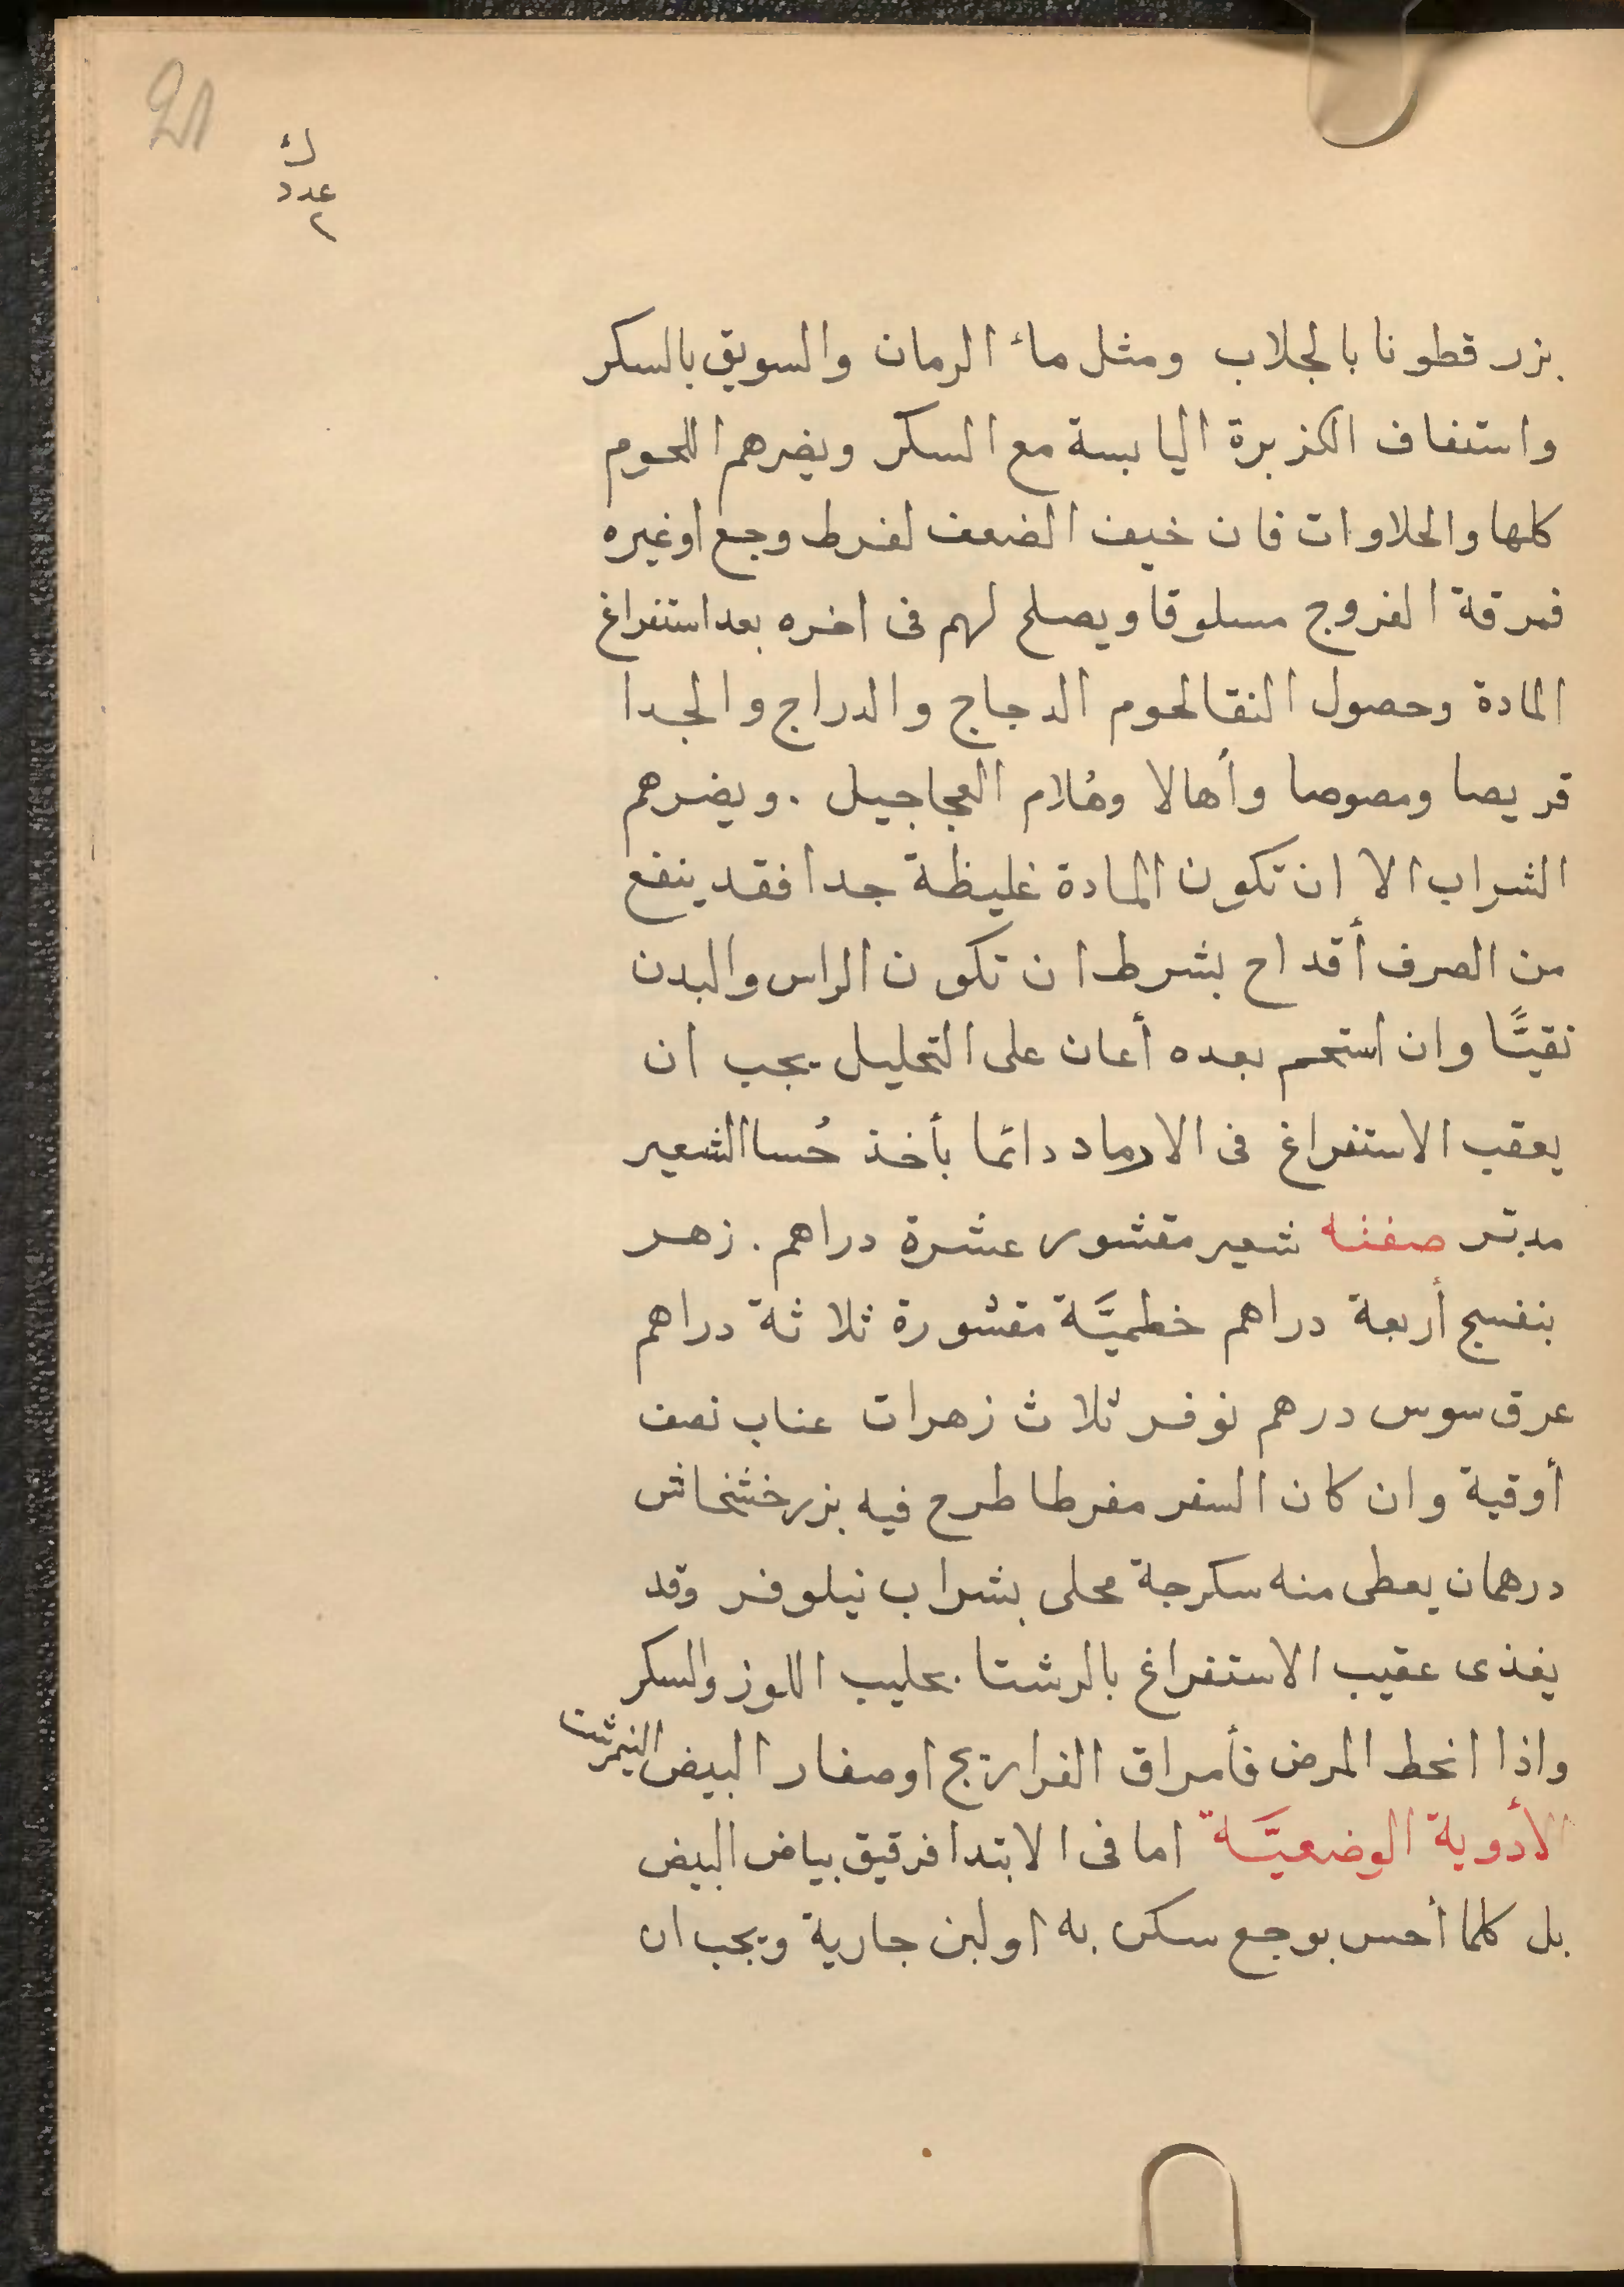 21
ك
عدد
٢
بزر قطونا بالجلاب ومثل ماء الرمان والسويق بالسكر
واستفاف الكزبرة اليابسة مع السكر ويضرهم اللحوم
كلها والحلاوات فان خيف الضعف لفرط وجع اوغيره
فمرقة الفروج مسلوقا ويصلح لهم فى اخره بعد استفراغ
المادة وحصول النقا لحوم الدجاج والدراج والجدا
قريصا ومصوصا وأهالا وهُلام العجاجيل . ويضرهم
الشراب الا ان تكون المادة غليظة جدا فقد ينفع
من الصرف أقداح بشرط ان تكون الراس والبدن
نقيًّا وان استحم بعده أعان على التحليل يجب ان
يعقب الاستفراغ فى الارماد دائما بأخذ حُسا الشعير
مدبّر صفته شعير مقشور عشرة دراهم . زهر
بنفسج أربعة دراهم خطميَّة مقشورة ثلاثة دراهم
عرق سوس درهم نوفر ثلاث زهرات عناب نصف
أوقية وان كان السفر مفرطا طرح فيه بزر خشخاش
درهمان يعطى منه سكرجة محلى بشراب نيلوفر وقد
يغذى عقيب الاستفراغ بالرشتا بحليب اللوز والسكر
واذا انحط المرض فأمراق الفراريج اوصفار البيض النيمرشت
الأدوية الوضعيَّة اما فى الابتدا فرقيق بياض البيض
بل كلما أحس بوجع سكن به او لبن جارية ويجب ان